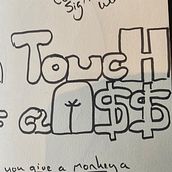 Sig
ToucH
a $$
you give a monkey a